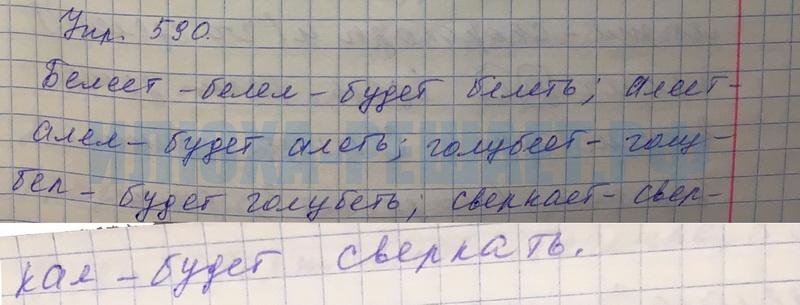 Упр. 590.
Белеет - белел - будет белеть; алеет-
алел - будет алеть; голубеет - голу-
бел - будет голубеть; сверкает - свер-
кал - будет сверкать.
ИЛЮХА-РЕШАЕТ.РФ